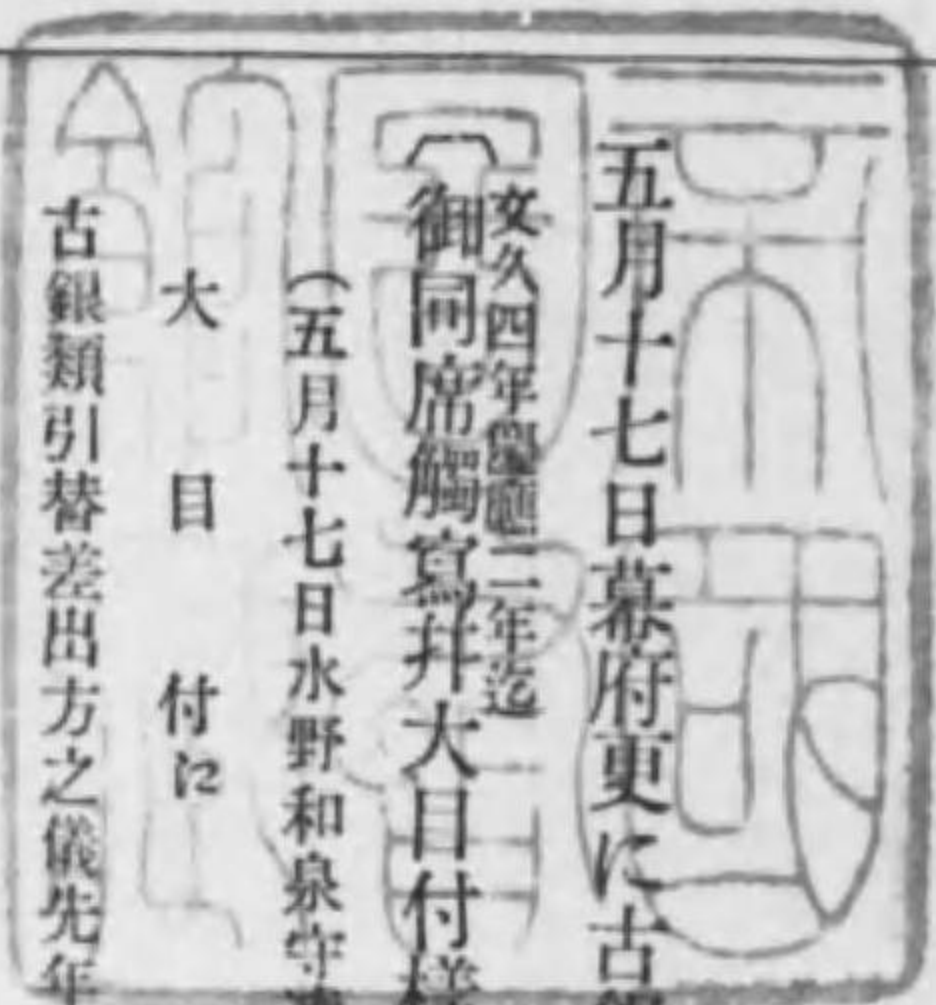 五月十七日幕府更に古銀
文久四年慶應二年迄
御同席觸寫幷大目付樣
(五月十七日水野和泉守達
大目付に
古銀類引替差出方之儀先年